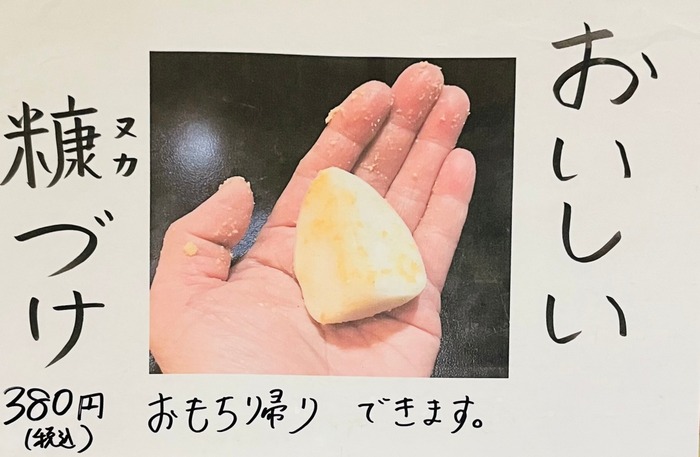 おいしい
糠づけ
ヌカ
380円
(税込)
おもちり帰り できます。